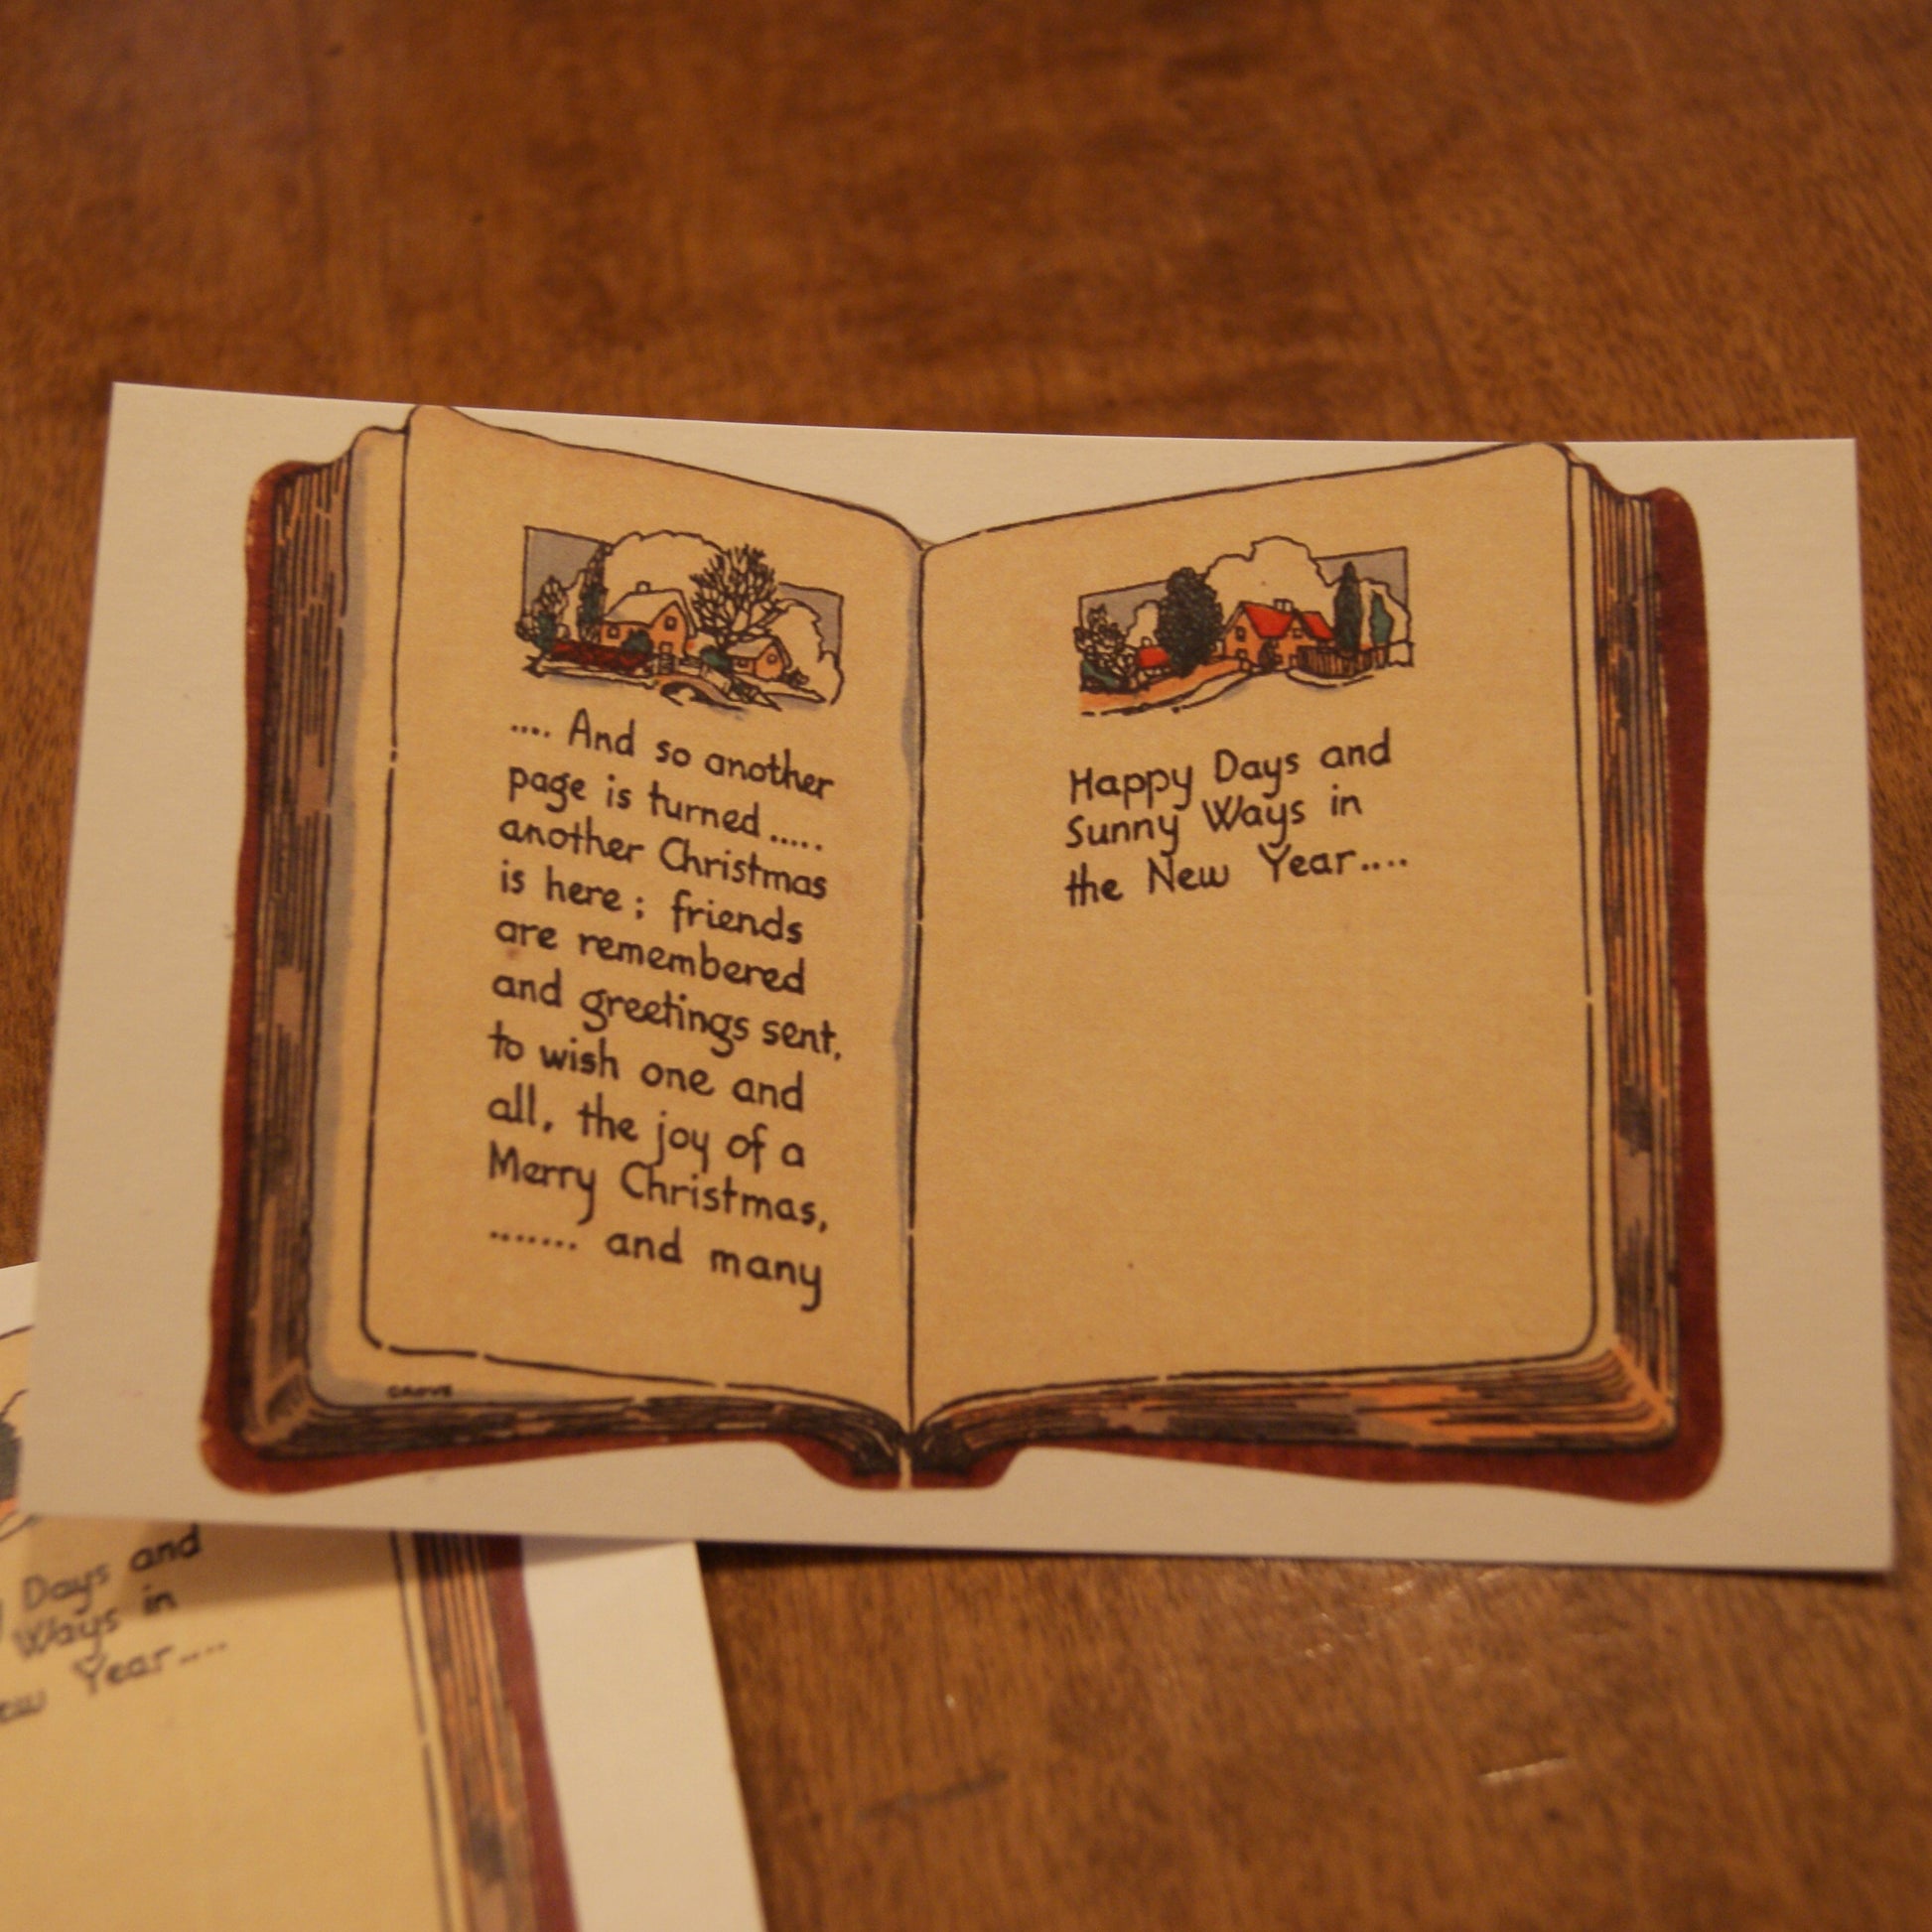 .... And so another
page is turned.....
another Christmas
is here; friends
are remembered
and greetings sent,
to wish one and
all, the joy of a
Merry Christmas,
....... and many
Happy Days and
Sunny Ways in
the New Year....
Days and
Ways in
Year....